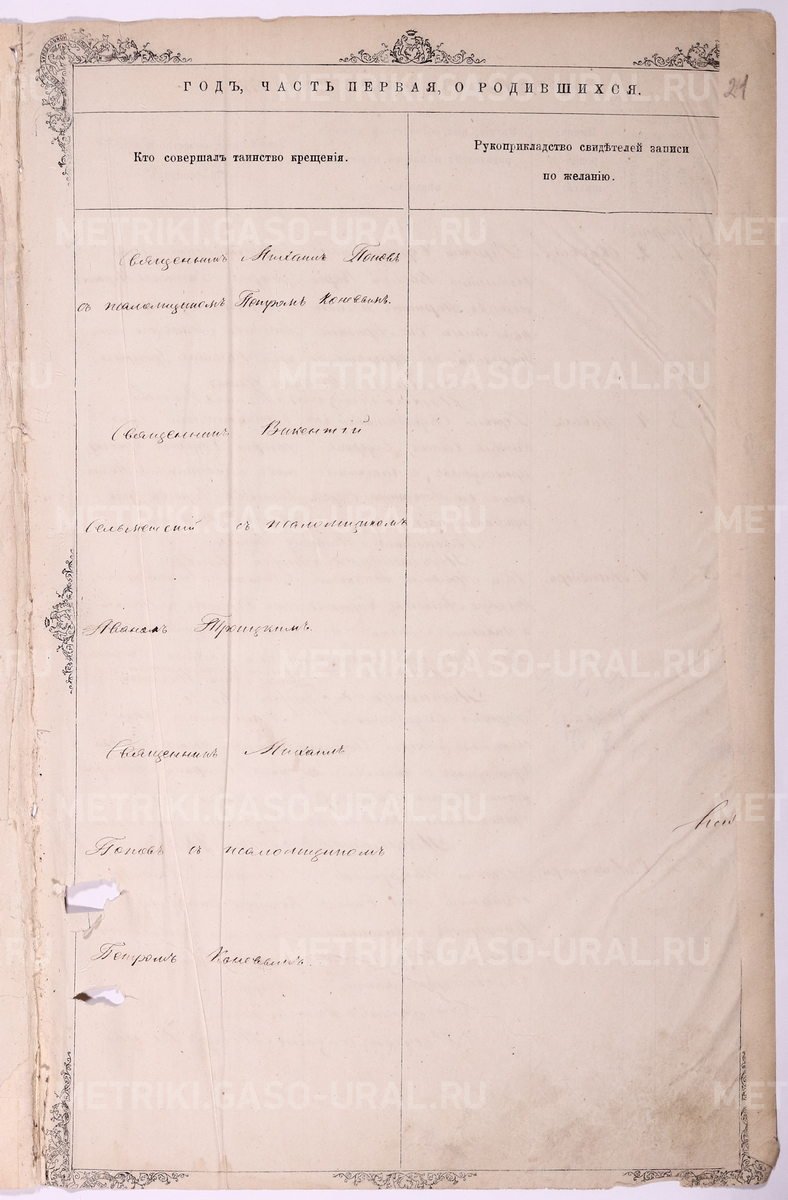 ГОДЪ, ЧАСТЬ ПЕРВАЯ, О РОДИВШИХСЯ.
21
Кто совершалъ таинство крещенія.
Рукоприкладство свидѣтелей записи
по желанію.
Священникъ Михаилъ Поповъ
съ псаломщикомъ Петромъ Коневымъ.
Священникъ Викентій
съ псаломщикомъ
Иваномъ Троицкимъ.
Священникъ Михаилъ
Поповъ съ псаломщикомъ
Петромъ Коневымъ.
METRIKI.GASO-URAL.RU